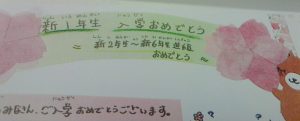 新1年生 入学おめでとう
新2年生〜新6年生進級
おめでとう
みなさん、ご入学おめでとうございます。